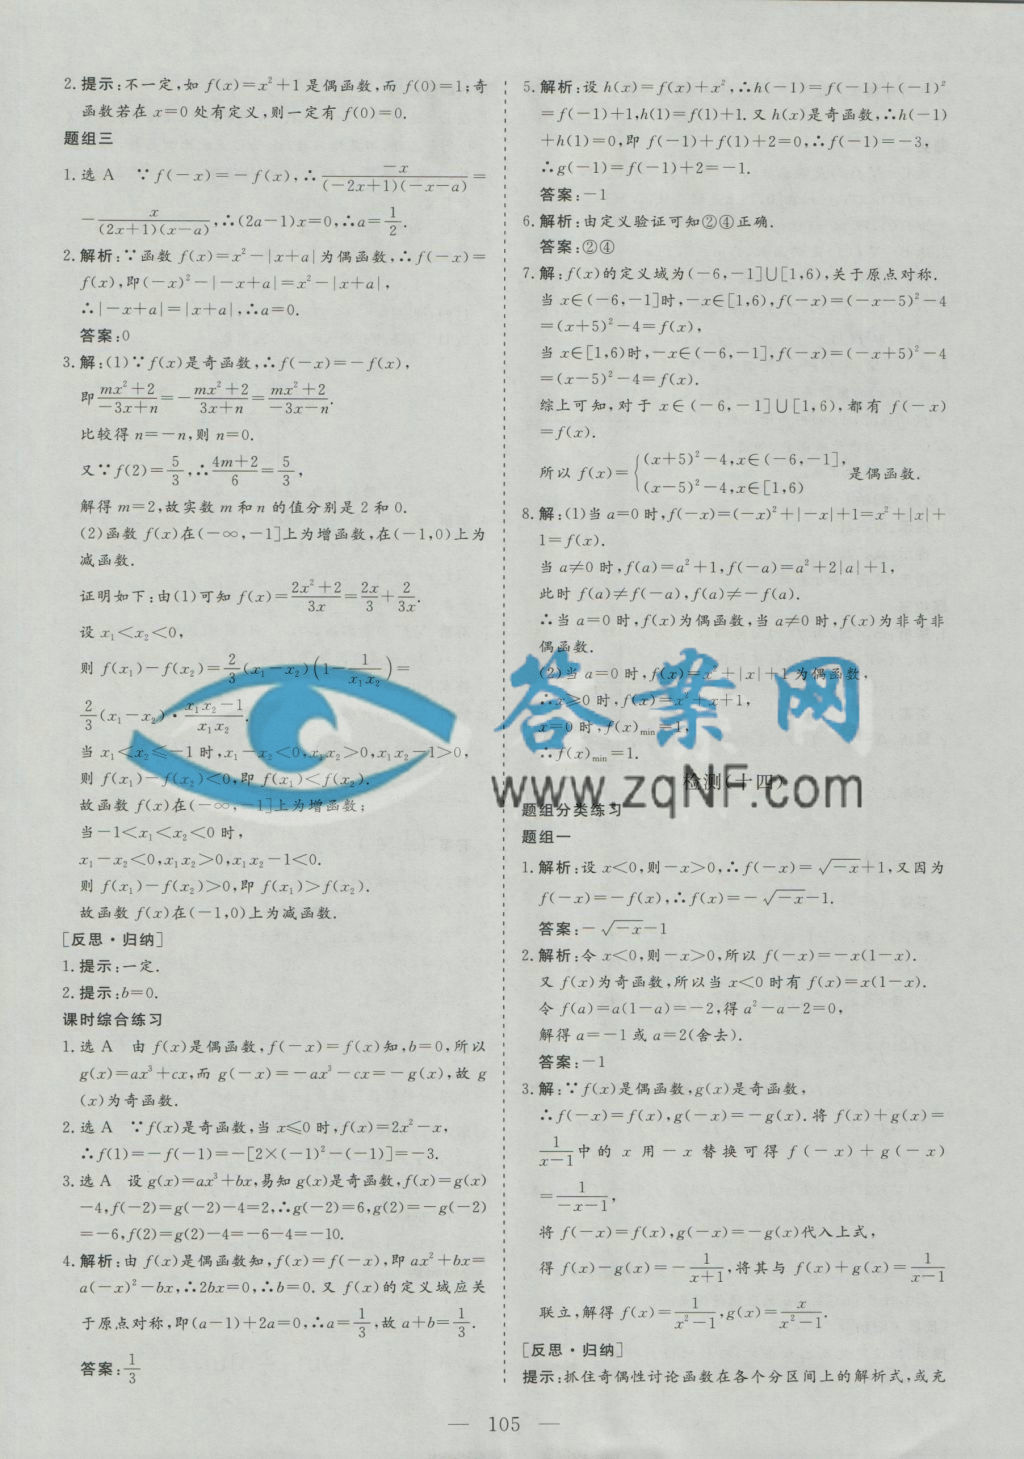 2.提示:不一定,如 f(x)=x²+1 是偶函数,而 f(0)=1;奇
函数若在 x=0 处有定义,则一定有 f(0)=0.
题组三
1.选 A ∵f(-x)=-f(x),∴-x/((-2x+1)(-x-a))=
-x/((2x+1)(x-a)),∴(2a-1)x=0,∴a=1/2.
2.解析:∵函数 f(x)=x²-|x+a|为偶函数,∴f(-x)=
f(x),即(-x)²-|-x+a|=x²-|x+a|,
∴|-x+a|=|x+a|,∴a=0.
答案:0
3.解:(1)∵f(x)是奇函数,∴f(-x)=-f(x),
即(mx²+2)/(-3x+n)=-(mx²+2)/(3x+n)=(mx²+2)/(-3x-n).
比较得 n=-n,则 n=0.
又∵f(2)=5/3,∴(4m+2)/6=5/3,
解得 m=2,故实数 m 和 n 的值分别是 2 和 0.
(2)函数 f(x)在(-∞,-1]上为增函数,在(-1,0)上为
减函数.
证明如下:由(1)可知 f(x)=(2x²+2)/3x=2x/3+2/3x.
设 x₁<x₂<0,
则 f(x₁)-f(x₂)=2/3(x₁-x₂)(1-1/x₁x₂)=
2/3(x₁-x₂)·(x₁x₂-1)/x₁x₂.
当 x₁<x₂≤-1 时,x₁-x₂<0,x₁x₂>0,x₁x₂-1>0,
则 f(x₁)-f(x₂)<0,即 f(x₁)<f(x₂).
故函数 f(x)在(-∞,-1]上为增函数;
当-1<x₁<x₂<0 时,
x₁-x₂<0,x₁x₂>0,x₁x₂-1<0.
则 f(x₁)-f(x₂)>0,即 f(x₁)>f(x₂).
故函数 f(x)在(-1,0)上为减函数.
[反思·归纳]
1.提示:一定.
2.提示:b=0.
课时综合练习
1.选 A 由 f(x)是偶函数,f(-x)=f(x)知,b=0,所以
g(x)=ax³+cx,而 g(-x)=-ax³-cx=-g(x),故 g
(x)为奇函数.
2.选 A ∵f(x)是奇函数,当 x≤0 时,f(x)=2x²-x,
∴f(1)=-f(-1)=-[2×(-1)²-(-1)]=-3.
3.选 A 设 g(x)=ax³+bx,易知 g(x)是奇函数,f(x)=g(x)
-4,f(-2)=g(-2)-4=2,∴g(-2)=6,g(2)=-g(-2)
=-6,f(2)=g(2)-4=-6-4=-10.
4.解析:由 f(x)是偶函数知,f(x)=f(-x),即 ax²+bx=
a(-x)²-bx,∴2bx=0,∴b=0.又 f(x)的定义域应关
于原点对称,即(a-1)+2a=0,∴a=1/3,故 a+b=1/3.
答案:1/3
5.解析:设 h(x)=f(x)+x²,∴h(-1)=f(-1)+(-1)²
=f(-1)+1,h(1)=f(1)+1.又 h(x)是奇函数,∴h(-1)
+h(1)=0,即 f(-1)+f(1)+2=0,∴f(-1)=-3,
∴g(-1)=f(-1)+2=-1.
答案:-1
6.解析:由定义验证可知②④正确.
答案:②④
7.解:f(x)的定义域为(-6,-1]∪[1,6),关于原点对称.
当 x∈(-6,-1]时,-x∈[1,6),f(-x)=(-x-5)²-4
=(x+5)²-4=f(x),
当 x∈[1,6)时,-x∈(-6,-1],f(-x)=(-x+5)²-4
=(x-5)²-4=f(x).
综上可知,对于 x∈(-6,-1]∪[1,6),都有 f(-x)
=f(x).
所以 f(x)={(x+5)²-4,x∈(-6,-1],
(x-5)²-4,x∈[1,6) 是偶函数.
8.解:(1)当 a=0 时,f(-x)=(-x)²+|-x|+1=x²+|x|+
1=f(x).
当 a≠0 时,f(a)=a²+1,f(-a)=a²+2|a|+1,
此时 f(a)≠f(-a),f(a)≠-f(a).
∴当 a=0 时,f(x)为偶函数,当 a≠0 时,f(x)为非奇非
偶函数.
(2)当 a=0 时,f(x)=x²+|x|+1 为偶函数,
∴x≥0 时,f(x)=x²+x+1,
x=0 时,f(x)min=1,
∴f(x)min=1.
检测(十四)
题组分类练习
题组一
1.解析:设 x<0,则-x>0,∴f(-x)=√-x+1,又因为
f(-x)=-f(x),∴f(x)=-√-x-1.
答案:-√-x-1
2.解析:令 x<0,则-x>0,所以 f(-x)=-x(1-x).
又 f(x)为奇函数,所以当 x<0 时有 f(x)=x(1-x).
令 f(a)=a(1-a)=-2,得 a²-a-2=0,
解得 a=-1 或 a=2(舍去).
答案:-1
3.解:∵f(x)是偶函数,g(x)是奇函数,
∴f(-x)=f(x),g(-x)=-g(x).将 f(x)+g(x)=
1/(x-1)中的 x 用-x 替换可得 f(-x)+g(-x)
=1/(-x-1),
将 f(-x)=f(x),g(-x)=-g(x)代入上式,
得 f(x)-g(x)=-1/(x+1),将其与 f(x)+g(x)=1/(x-1)
联立,解得 f(x)=1/(x²-1),g(x)=x/(x²-1).
[反思·归纳]
提示:抓住奇偶性讨论函数在各个分区间上的解析式,或充
— 105 —
答案网
www.zqNF.com